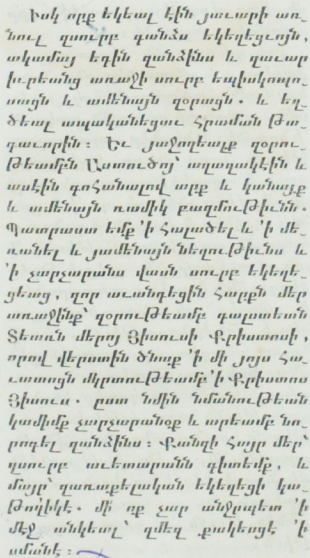 Իսկ որք եկեալ էին յաւարի առ-
նուլ զսուրբ գանձս եկեղեցւոյն,
ակամայ եդին զանձինս և զաւար
իւրեանց առաջի սուրբ եպիսկոպո-
սացն և ամենայն զօրացն. և եղ-
ծեալ ապականեցաւ Հրաման Թա-
գաւորին։ Եւ յաջողեալք զօրու-
Թեամբն Աստուծոյ՝ աղաղակէին և
ասէին գոհանալով արք և կանայք
և ամենայն ռամիկ բազմուԹիւնն.
Պատրաստ եմք ՚ի Հալածել և ՚ի մե-
ռանել և յամենայն նեղուԹիւնս և
՚ի չարչարանս վասն սուրբ եկեղե-
ցեաց, զոր աւանդեցին Հարքն մեր
առաջինք՝ զօրուԹեամբ գալստեան
Տեառն մերոյ Յիսուսի Քրիստոսի,
որով վերստին ծնաք ՚ի մի յոյս Հա-
ւատոյն մկրտուԹեամբ ՚ի Քրիստոս
Յիսուս. ըստ նմին նմանուԹեան
կամիմք չարչարանօք և արեամբ նո-
րոգել զանձինս։ Քանզի Հայր մեր՝
զսուրբ աւետարանն գիտեմք, և
մայր՝ զառաքելական եկեղեցի կա-
Թողիկէ. մի ոք չար անջրպետ ՚ի
մէջ անկեալ՝ զմեզ քակեսցէ ՚ի
սմանէ։